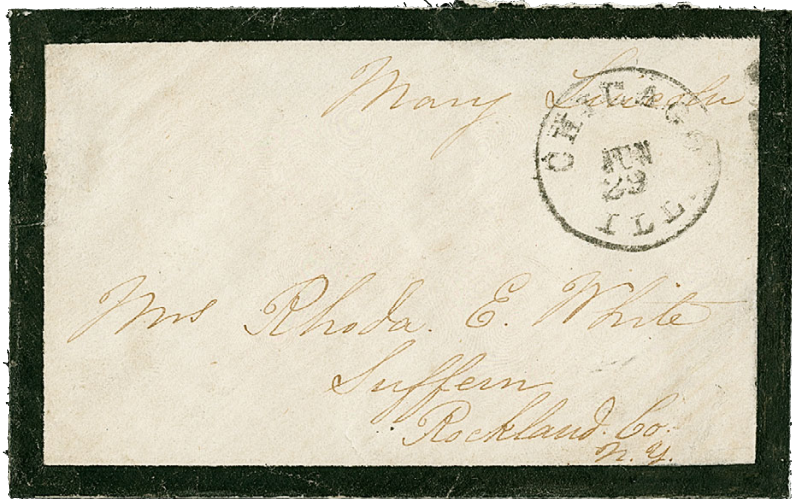 Mary Lincoln
CHICAGO
JUN
29
ILL.
Mrs Rhoda. E. White
Suffern
Rockland. Co.
N. Y.